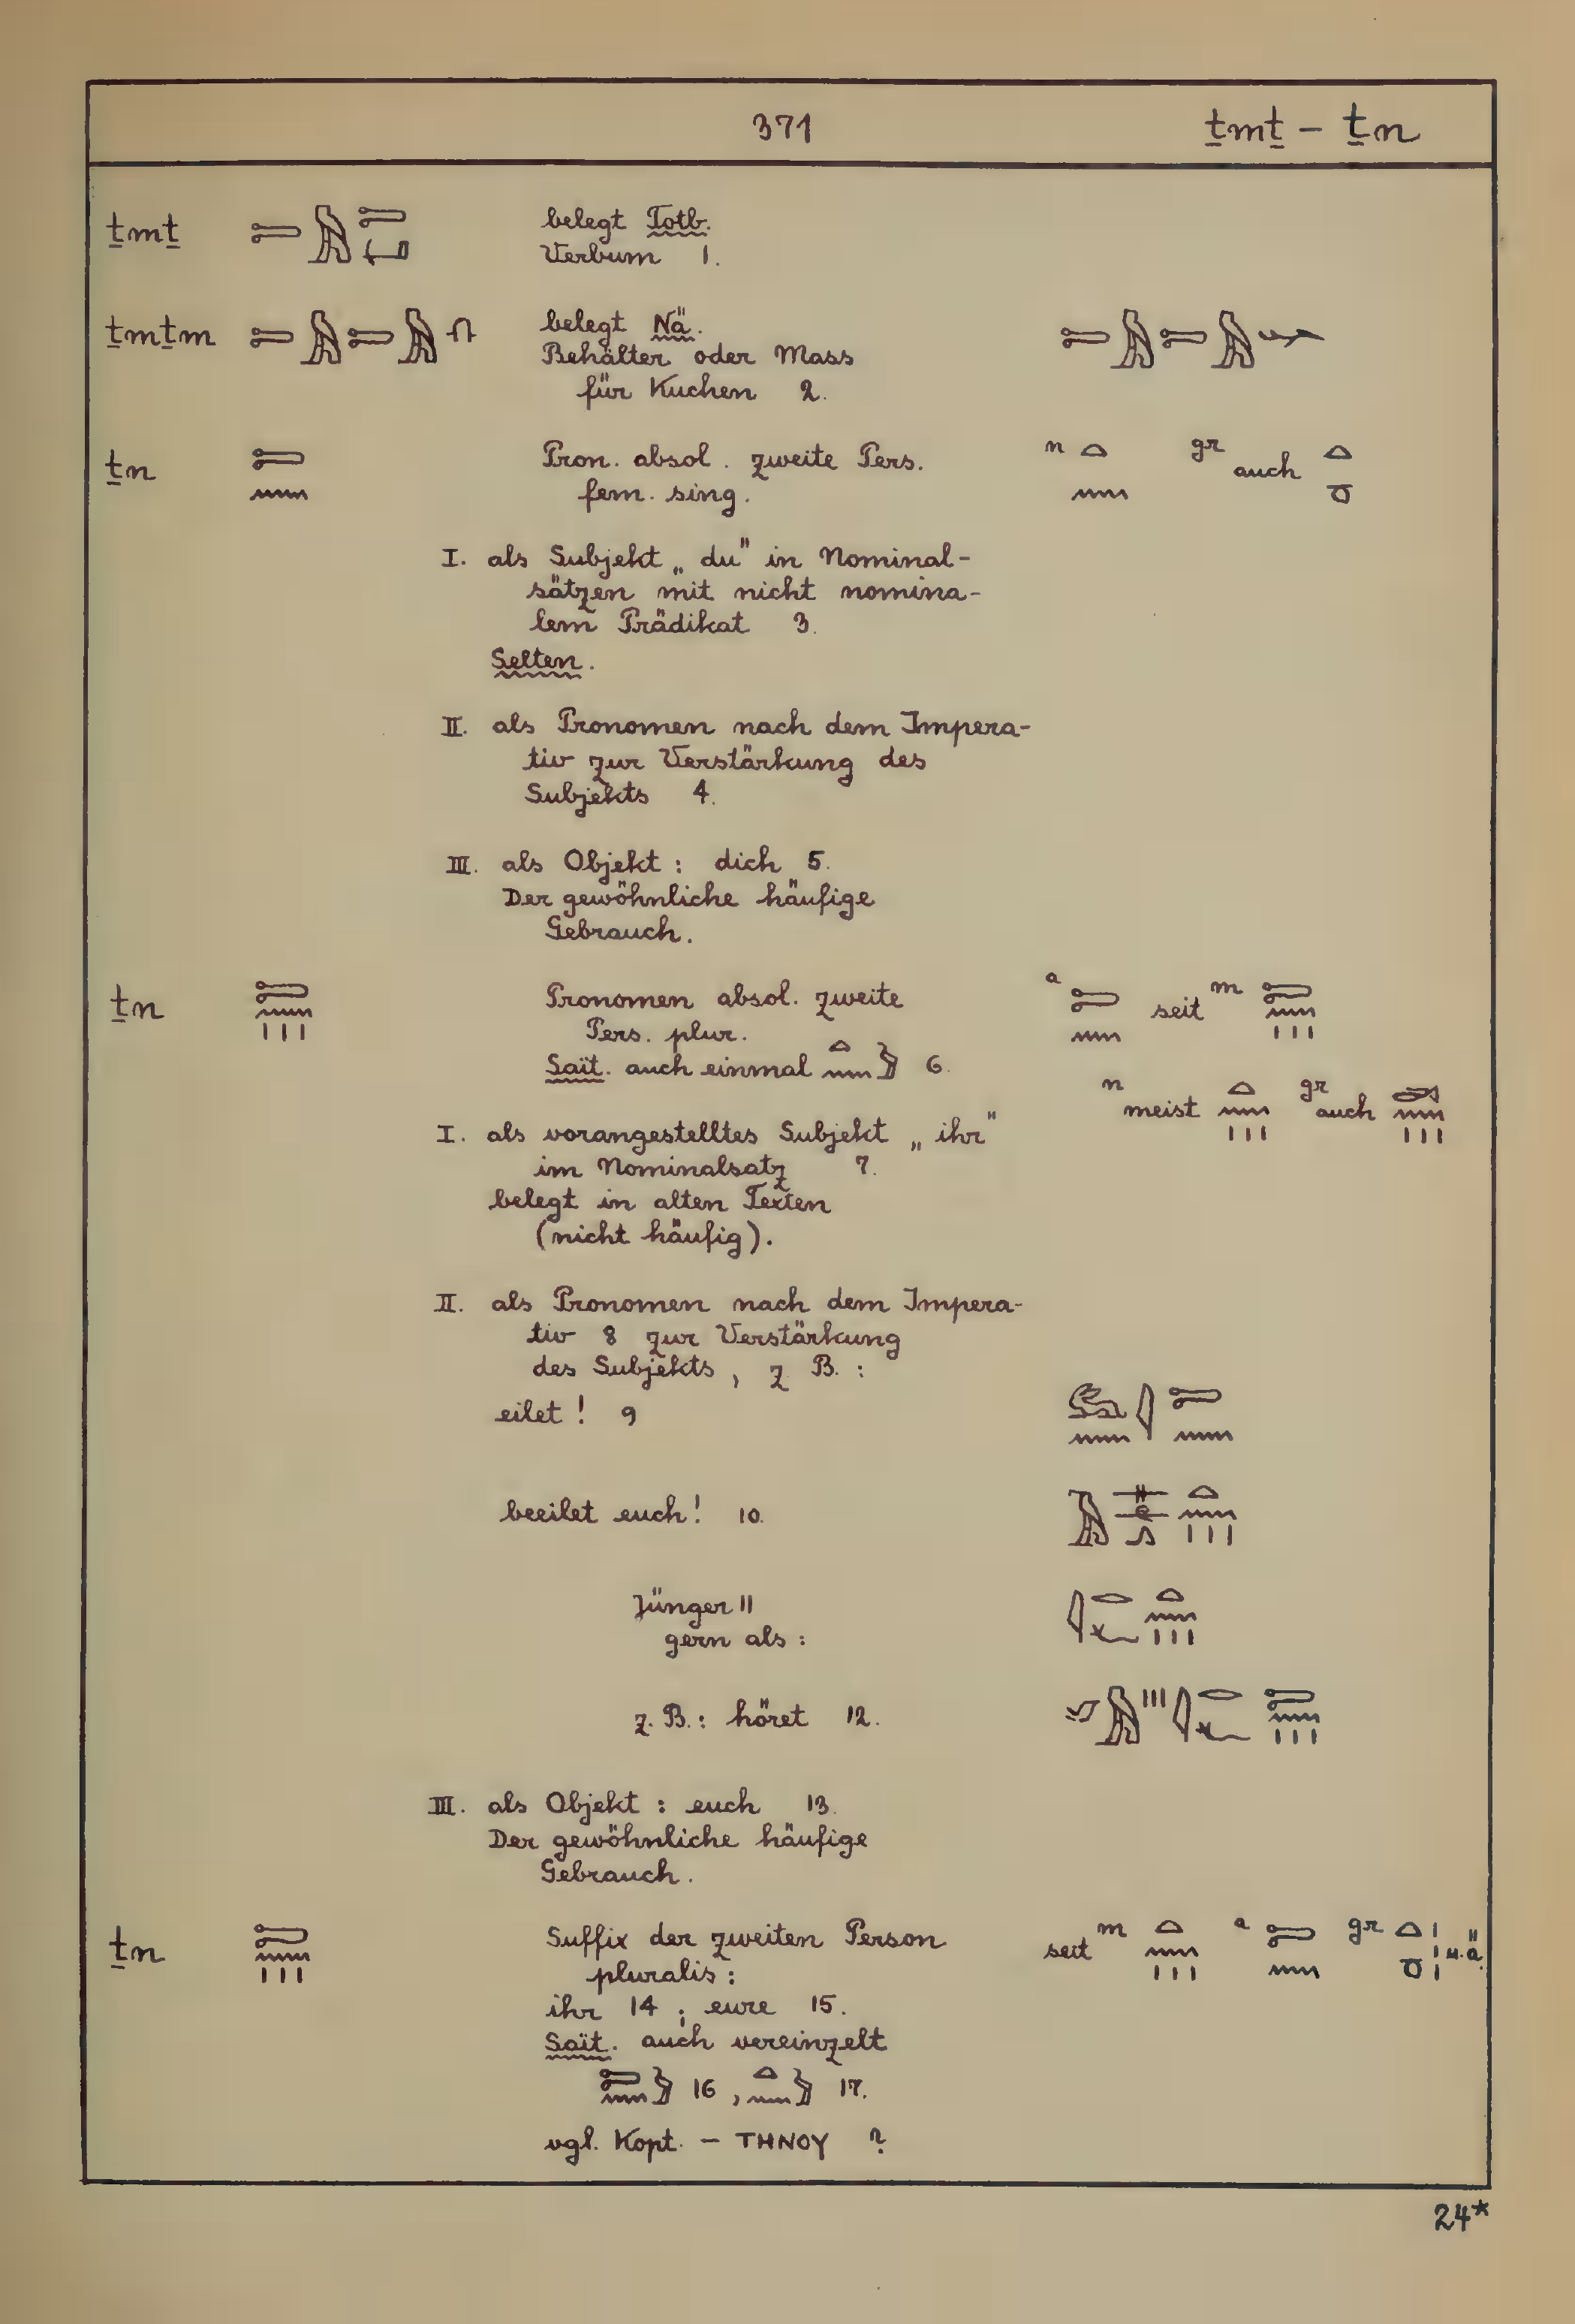 371 ṯmṯ – ṯn
ṯmṯ belegt Totb.
Verbum 1.
ṯmṯm belegt Nä.
Behälter oder Mass
für Kuchen 2.
ṯn Pron. absol. zweite Pers. n gr auch
fem. sing.
I. als Subjekt „du" in Nominal-
sätzen mit nicht nomina-
lem Prädikat 3.
Selten.
II. als Pronomen nach dem Impera-
tiv zur Verstärkung des
Subjekts 4.
III. als Objekt: dich 5.
Der gewöhnliche häufige
Gebrauch.
ṯn Pronomen absol. zweite a seit m
Pers. plur.
Saït. auch einmal 6.
n meist gr auch
I. als vorangestelltes Subjekt „ihr"
im Nominalsatz 7.
belegt in alten Texten
(nicht häufig).
II. als Pronomen nach dem Impera-
tiv 8 zur Verstärkung
des Subjekts, z B.:
eilet! 9
beeilet euch! 10.
Jünger 11
gern als:
z. B.: höret 12.
III. als Objekt: euch 13.
Der gewöhnliche häufige
Gebrauch.
ṯn Suffix der zweiten Person seit m a gr u.ä.
pluralis:
ihr 14; eure 15.
Saït. auch vereinzelt
16, 17.
vgl. Kopt. – ΤΗΝΟΥ ?
24*